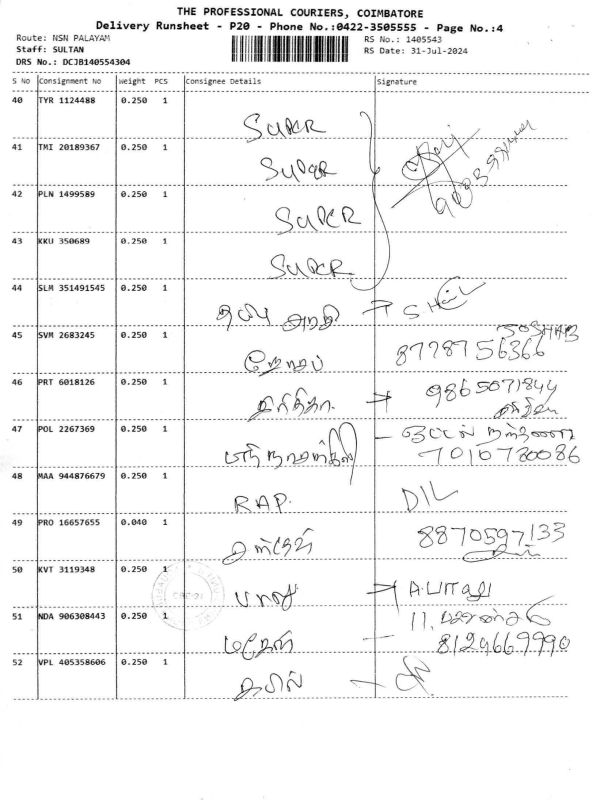 THE PROFESSIONAL COURIERS, COIMBATORE
Delivery Runsheet - P20 - Phone No.:0422-3505555 - Page No.:4
Route: NSN PALAYAM
Staff: SULTAN
DRS No.: DCJB140554304
RS No.: 1405543
RS Date: 31-Jul-2024
S No Consignment No Weight PCS Consignee Details Signature
40 TYR 1124488 0.250 1 SUPER
41 TMI 20189367 0.250 1 SUPER
42 PLN 1499589 0.250 1 SUPER
43 KKU 350689 0.250 1 SUPER
44 SLM 351491545 0.250 1
45 SVM 2683245 0.250 1 8778756366
46 PRT 6018126 0.250 1 9865071844
47 POL 2267369 0.250 1 7010730086
48 MAA 944876679 0.250 1 RAP. DIL
49 PRO 16657655 0.040 1 8870597133
50 KVT 3119348 0.250 1 பாலு A.பாலு
51 NDA 906308443 0.250 1 8129669990
52 VPL 405358606 0.250 1